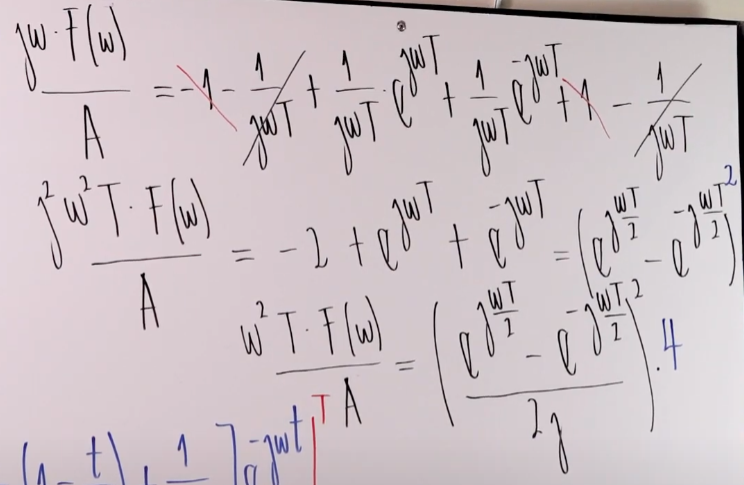 jω·F(ω)/A = -1 - 1/jωT + 1/jωT · e^jωT + 1/jωT e^-jωT + 1 - 1/jωT
j²ω²T·F(ω)/A = -2 + e^jωT + e^-jωT = (e^jωT/2 - e^-jωT/2)²
ω²T·F(ω)/A = (e^jωT/2 - e^-jωT/2 / 2j)² · 4
t 1 ]e^-jωt |T